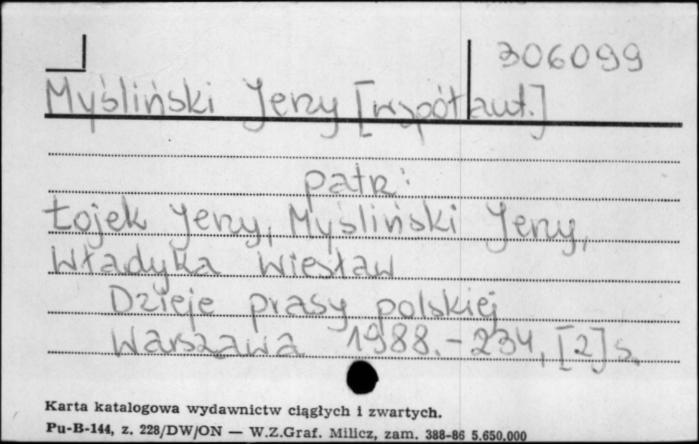 306099
Myśliński Jerzy [współaut.]
patrz:
Łojek Jerzy, Myśliński Jerzy,
Władyka Wiesław
Dzieje prasy polskiej
Warszawa 1988. - 234, [2] s.
Karta katalogowa wydawnictw ciągłych i zwartych.
Pu-B-144, z. 228/DW/ON — W.Z.Graf. Milicz, zam. 388-86 5.650.000